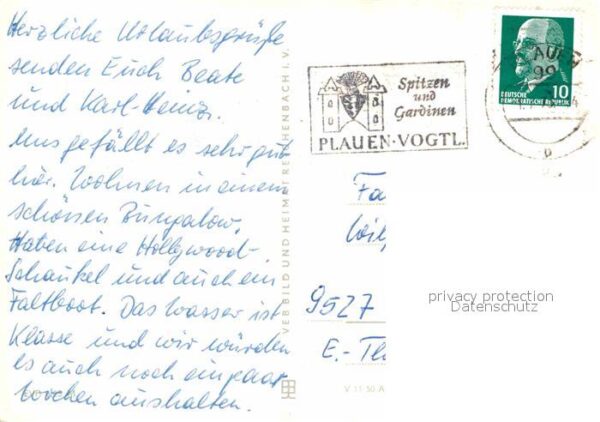 Herzliche Urlaubsgrüße
senden Euch Beate
und Karl-Heinz.
Uns gefällt es sehr gut
hier. Wohnen in einem
schönen Bungalow.
Haben eine Hollywood-
Schaukel und auch ein
Faltboot. Das Wasser ist
Klasse und wir würden
es auch noch ein paar
Wochen aushalten.
VEB BILD UND HEIMAT REICHENBACH I. V.
V 11 50 A
Spitzen
und
Gardinen
PLAUEN·VOGTL.
PLAUEN
99
10
DEUTSCHE
DEMOKRATISCHE REPUBLIK
Fa
9527
E.-Th
privacy protection
Datenschutz